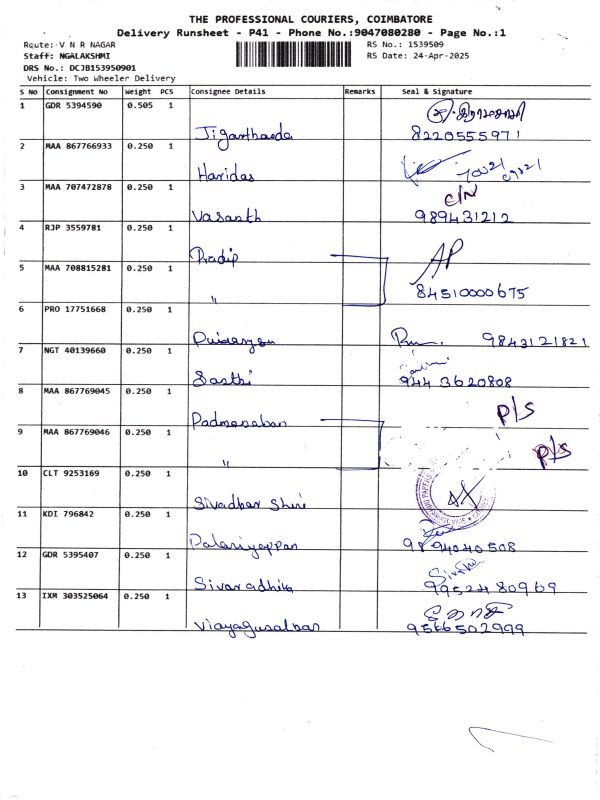 THE PROFESSIONAL COURIERS, COIMBATORE
Delivery Runsheet - P41 - Phone No.:9047080280 - Page No.:1
Route: V N R NAGAR RS No.: 1539509
Staff: NGALAKSHMI RS Date: 24-Apr-2025
DRS No.: DCJB153950901
Vehicle: Two Wheeler Delivery
S No Consignment No Weight PCS Consignee Details Remarks Seal & Signature
1 GDR 5394590 0.505 1
Jigarthanda 8220555971
2 MAA 867766933 0.250 1
Haridas
3 MAA 707472878 0.250 1 C/N
Vasanth 989431212
4 RJP 3559781 0.250 1
Pradip
5 MAA 708815281 0.250 1
" 84510000675
6 PRO 17751668 0.250 1
9843121821
7 NGT 40139660 0.250 1
Sasthi 9443620808
8 MAA 867769045 0.250 1
Padmanaban P/S
9 MAA 867769046 0.250 1
" P/S
10 CLT 9253169 0.250 1
Sivadhar Shini
11 KDI 796842 0.250 1
Palaniyappan 9894040508
12 GDR 5395407 0.250 1
Sivaradhika 9952480969
13 IXM 303525064 0.250 1
9566502999